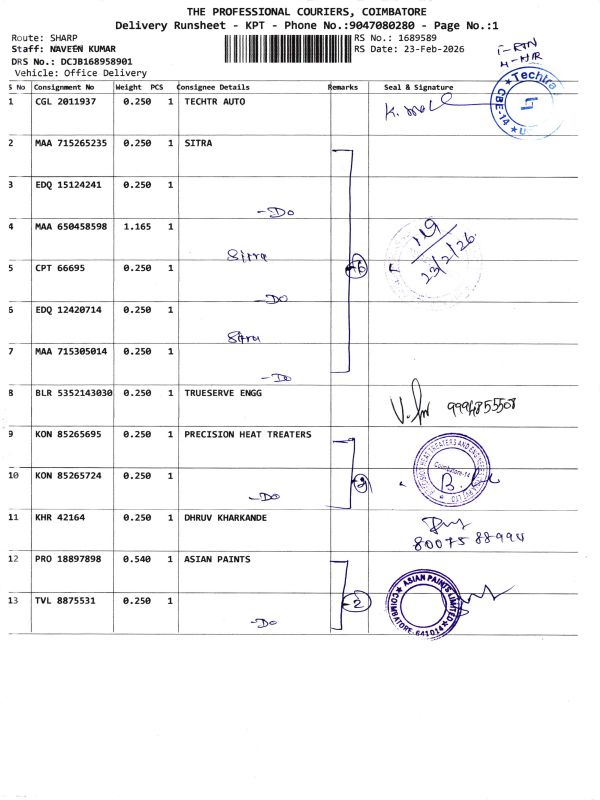 THE PROFESSIONAL COURIERS, COIMBATORE
Delivery Runsheet - KPT - Phone No.:9047080280 - Page No.:1
Route: SHARP
RS No.: 1689589
Staff: NAVEEN KUMAR
RS Date: 23-Feb-2026
DRS No.: DCJB168958901
Vehicle: Office Delivery
S No Consignment No Weight PCS Consignee Details Remarks Seal & Signature
1 CGL 2011937 0.250 1 TECHTR AUTO
Techtra
CBE-14
2 MAA 715265235 0.250 1 SITRA
3 EDQ 15124241 0.250 1
-Do
4 MAA 650458598 1.165 1
Sitra
23/2/26
5 CPT 66695 0.250 1
-Do
6 EDQ 12420714 0.250 1
Sitra
7 MAA 715305014 0.250 1
-Do
8 BLR 5352143030 0.250 1 TRUESERVE ENGG
9994855508
9 KON 85265695 0.250 1 PRECISION HEAT TREATERS
Coimbatore-14
10 KON 85265724 0.250 1
-Do
11 KHR 42164 0.250 1 DHRUV KHARKANDE
80075 88994
12 PRO 18897898 0.540 1 ASIAN PAINTS
2
ASIAN PAINTS LIMITED
COIMBATORE-641014
13 TVL 8875531 0.250 1
-Do